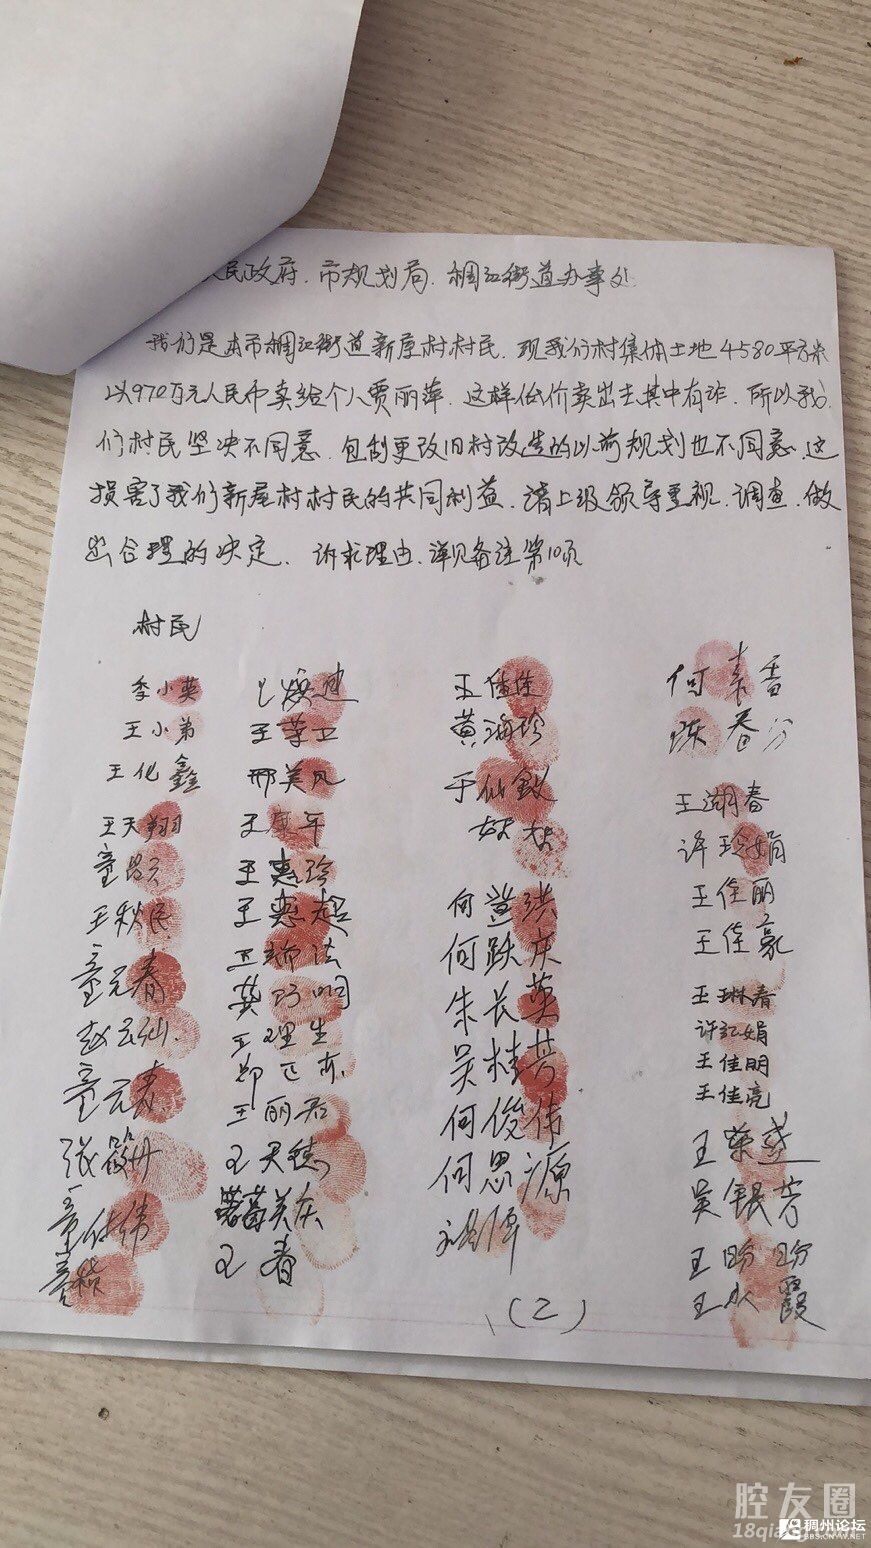 人民政府.市规划局.稠江街道办事处
我们是本市稠江街道新屋村村民.现我们村集体土地4580平方米
以970万元人民币卖给个人贾丽萍.这样低价卖出去其中有诈.所以我
们村民坚决不同意.包刮更改旧村改造的以前规划也不同意.这
损害了我们新屋村村民的共同利益.请上级领导重视.调查.做
出合理的决定.诉求理由.详见备注第10页
村民
李小英
王小弟
王化鑫
王天翔
童
王秋民
童元春
赵云仙
童元春
张筱丹
童
童
王
王
邢美凤
王年
王惠珍
王惠超
王法
龚巧
王理生
郑
王丽君
王天德
王春
王佳佳
黄海珍
何洪
何跃庆
朱长英
吴桂芳
何俊伟
何思源
何素香
陈春
王湖春
许玲娟
王佳丽
王佳豪
王琳春
许红娟
王佳明
王佳亮
王荣
吴银芳
王盼盼
王水霞
(2)
腔友圈
18qiang
稠州论坛
BBS.CNYW.NET